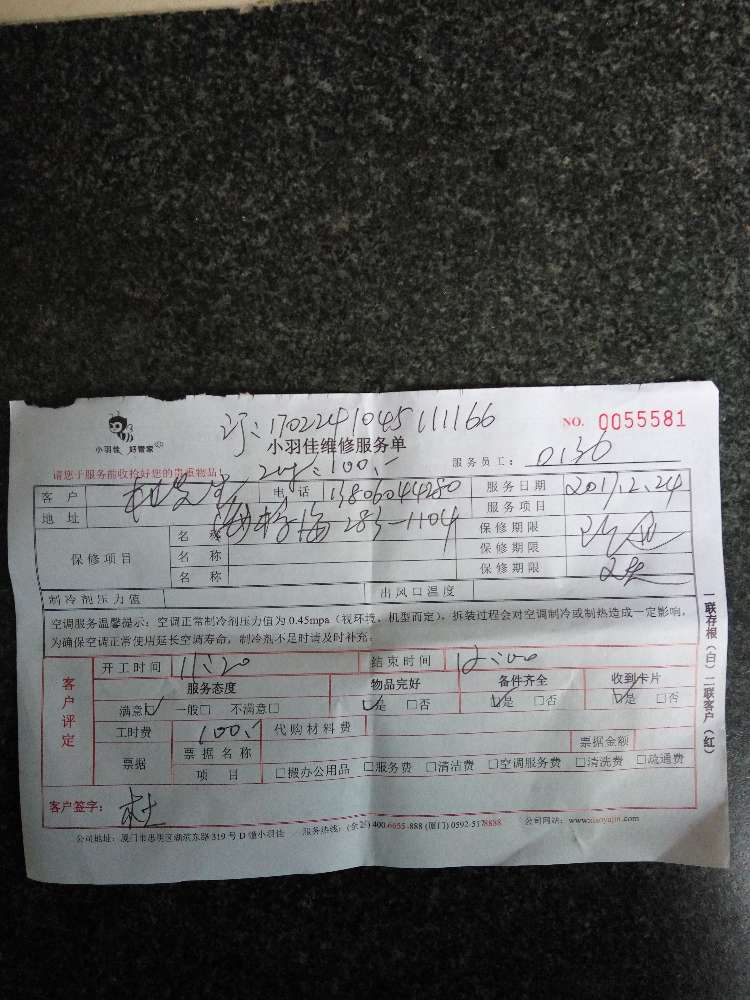 订：1702241045111166
NO. 0055581
小羽佳 好管家
小羽佳维修服务单
请您于服务前收拾好您的贵重物品！
100.-
服务员工： 0136
客 户 电 话 13806044280 服务日期 2017.2.24
地 址 283-1104 服务项目
保修项目 名 称 保修期限
名 称 保修期限
名 称 保修期限
制冷剂压力值 出风口温度
空调服务温馨提示：空调正常制冷剂压力值为0.45mpa（视环境、机型而定），拆装过程会对空调制冷或制热造成一定影响，
为确保空调正常使用延长空调寿命，制冷剂不足时请及时补充。
客户评定
开工时间 11:20 结束时间 12:00
服务态度 物品完好 备件齐全 收到卡片
满意☑ 一般□ 不满意□ ☑是 □否 ☑是 □否 ☑是 □否
工时费 100.- 代购材料费
票据 票据名称 票据金额
项 目 □搬办公用品 □服务费 □清洁费 □空调服务费 □清洗费 □疏通费
客户签字： 杜
公司地址：厦门市思明区湖滨东路319号D幢小羽佳 服务热线：(全国)400-6655-888 (厦门)0592-5178888 公司网站：www.xiaoyujia.com
一联存根（白）二联客户（红）